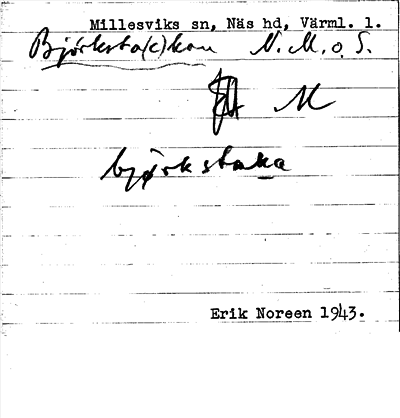 Millesviks sn, Näs hd, Värml. l.
Björksta(c)kan N. M. o. S.
M
björkstaka
Erik Noreen 1943.